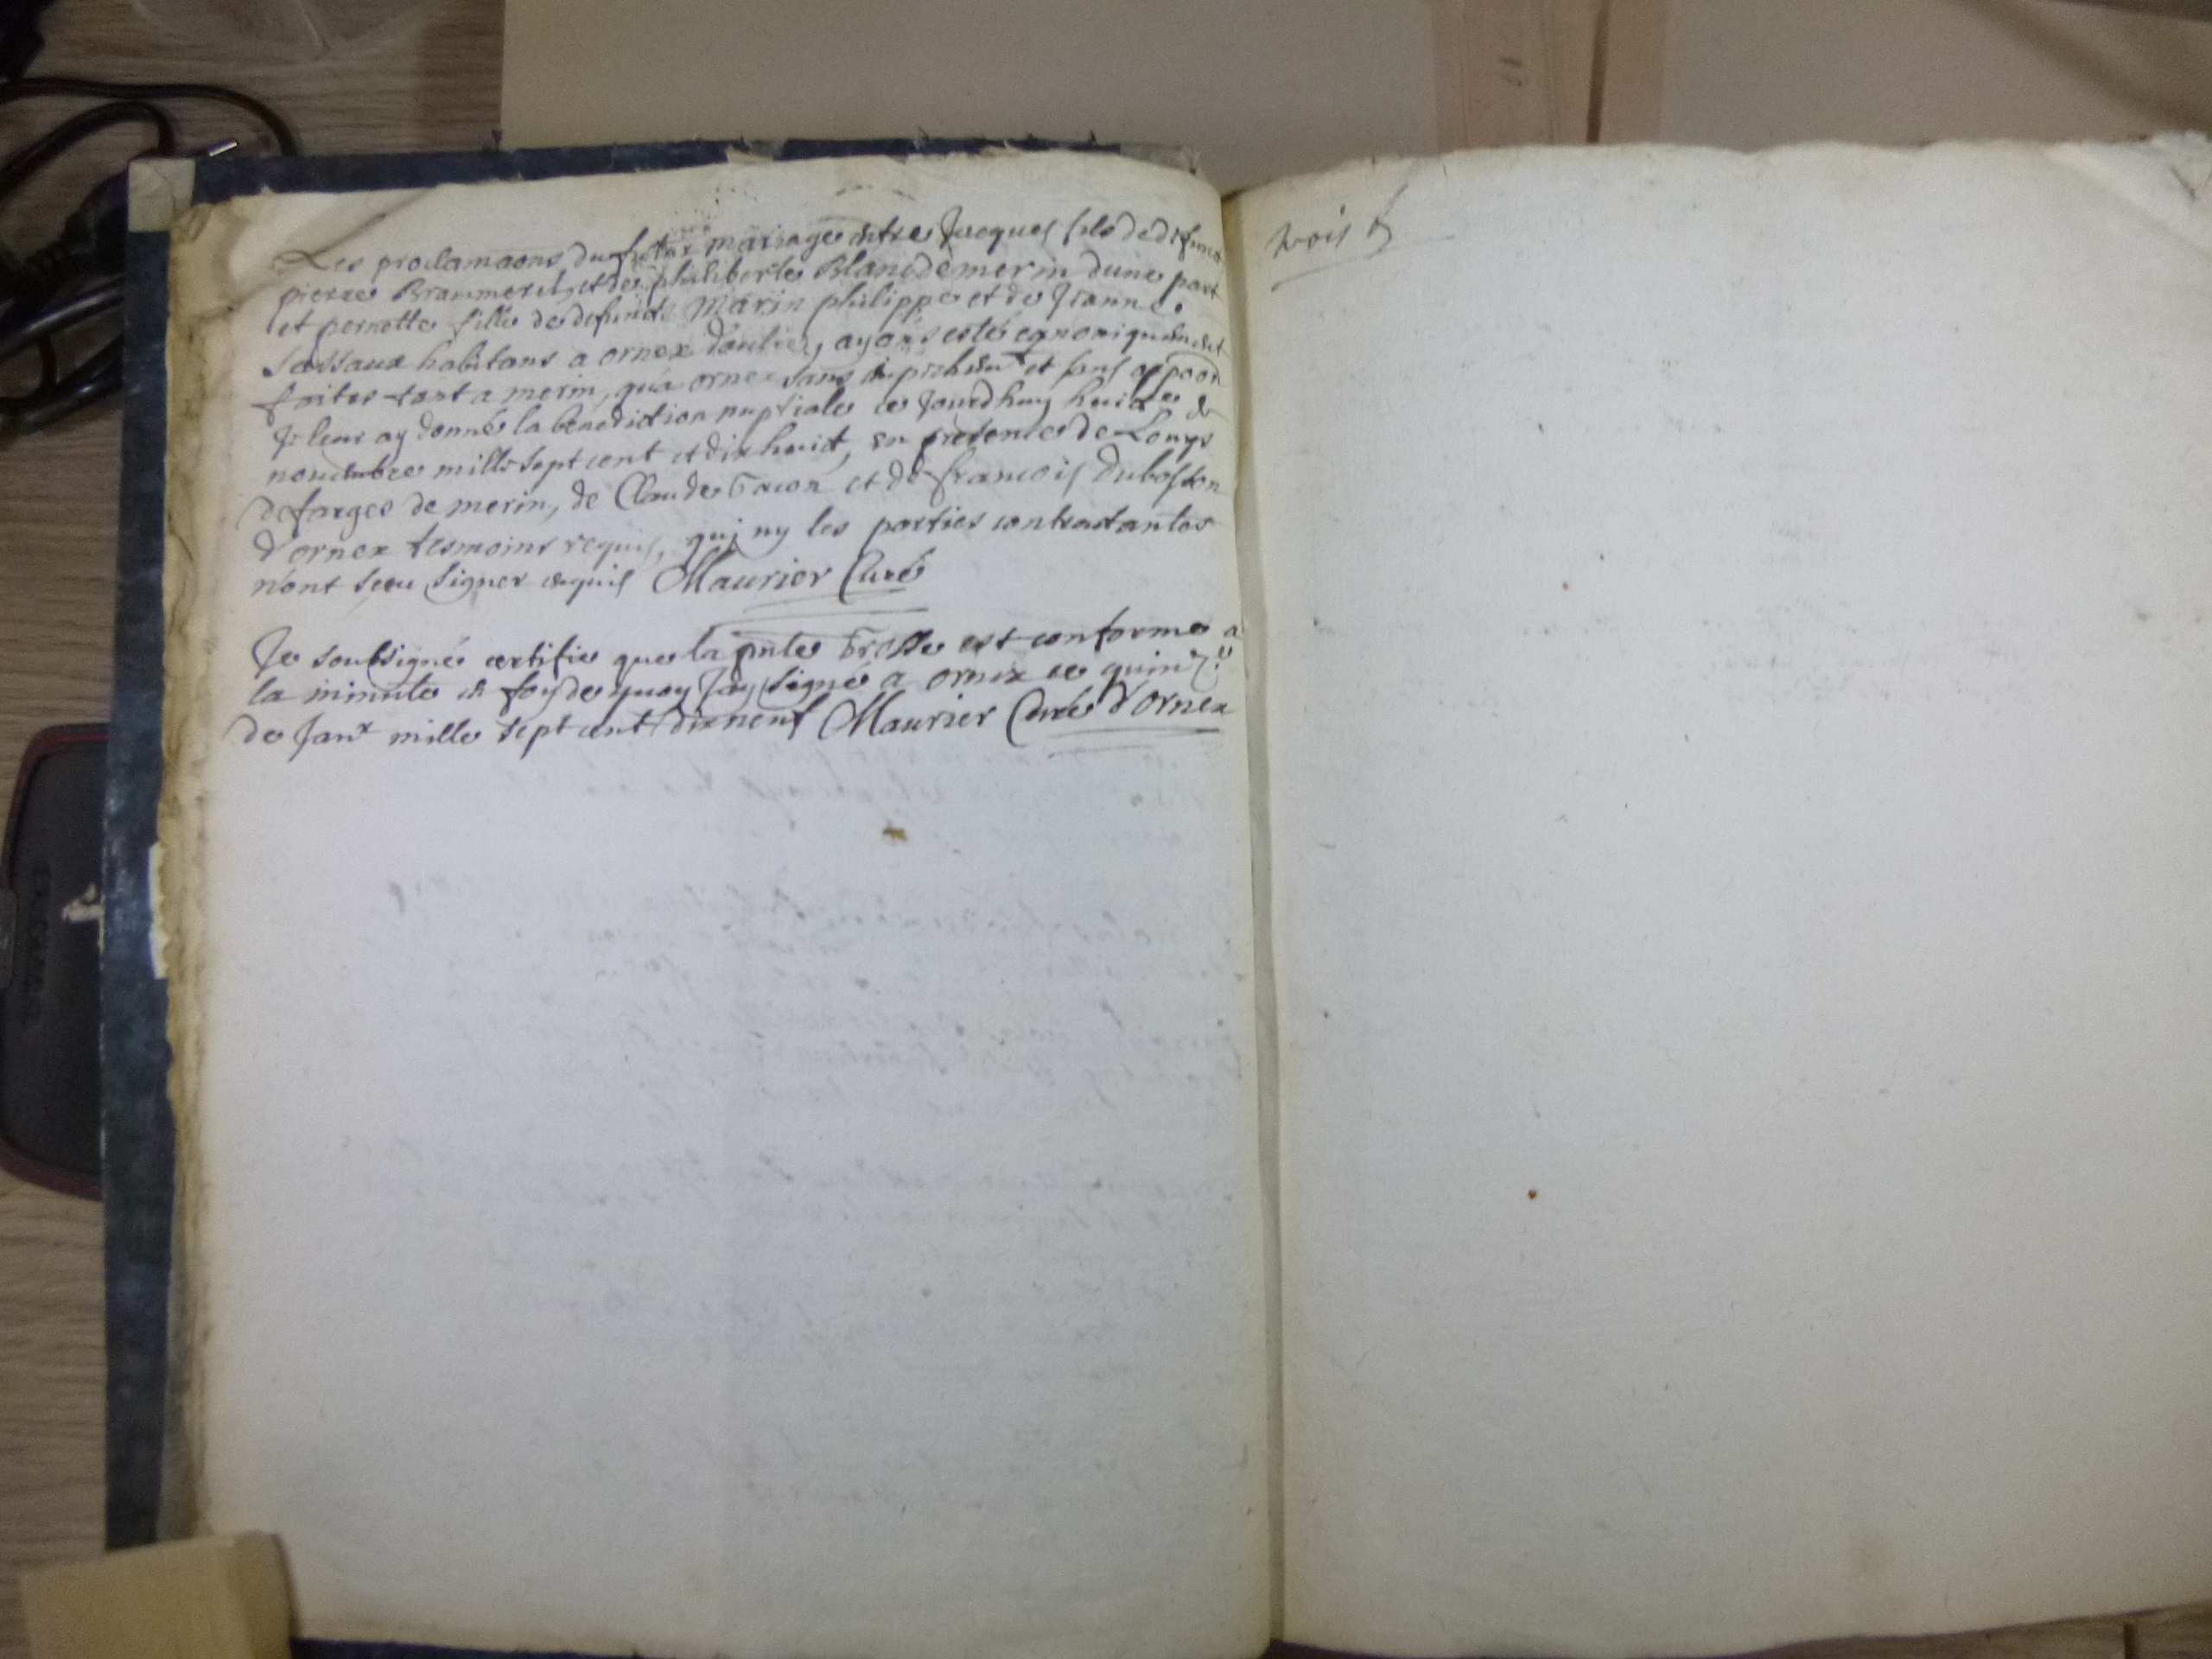 Les proclamaons du futur mariage entre Jacques fils de defunct
pierre et de philiberte Blanc de merin dune part
et pernette fille de defuncts Marin philippe et de Jeanne
Sassaux habitans a ornex dautre, ayans esté canoniquement
faites tant a merin, qu'a ornex sans et sans oppoon
Je leur ay donné la bénédiction nuptiale ce Jourdhuy huict de
novembre mille sept cent et dix huict, en presence de Louys
deforges de merin, de Claude Tacon et de francois duboston
d'ornex tesmoins requis, qui ny les parties contractantes
n'ont sceu signer enquis Maurier Curé
Je soubsigné certifie que la pnte Grosse est conforme a
la minute en foy de quoy J'ay signé a ornex ce quinz.e
de Janr mille sept cent dixneuf Maurier Curé d'Ornex